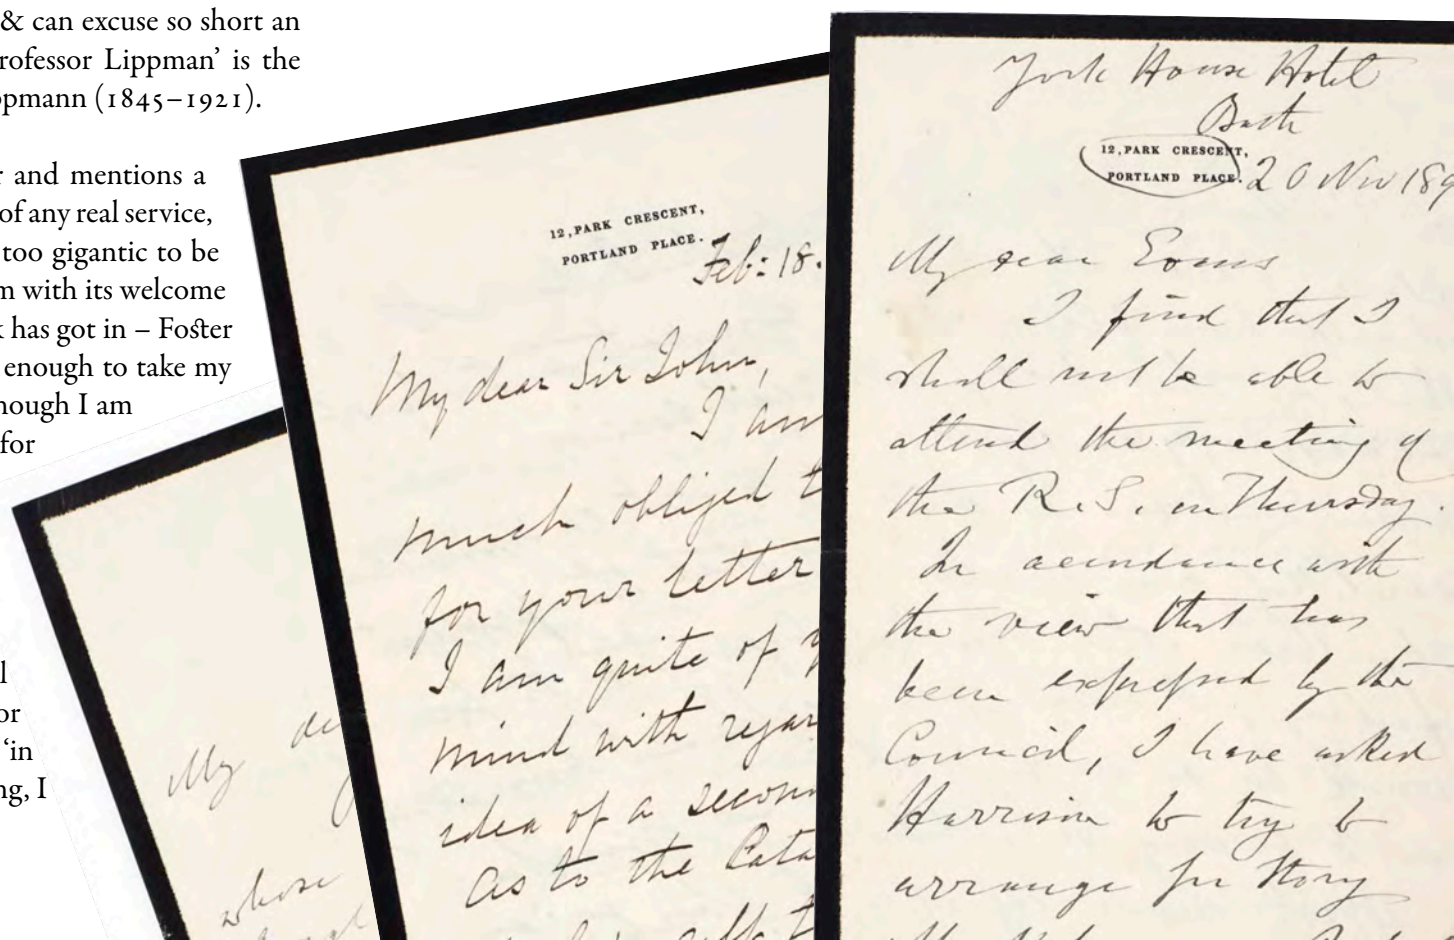 & can excuse so short an
rofessor Lippman’ is the
ppmann (1845–1921).
r and mentions a
of any real service,
too gigantic to be
m with its welcome
k has got in – Foster
enough to take my
hough I am
for
l
or
‘in
ng, I
My de
whose
12, PARK CRESCENT,
PORTLAND PLACE.
Feb: 18.
My dear Sir John,
I am
much obliged t
for your letter
I am quite of y
mind with regar
idea of a secon
as to the Cata
York House Hotel
Bath
12, PARK CRESCENT,
PORTLAND PLACE.
20 Nov 189
My dear Evans
I find that I
shall not be able to
attend the meeting of
the R.S. on Thursday.
In accordance with
the view that has
been expressed by the
Council, I have asked
Harrison to try to
arrange for Story